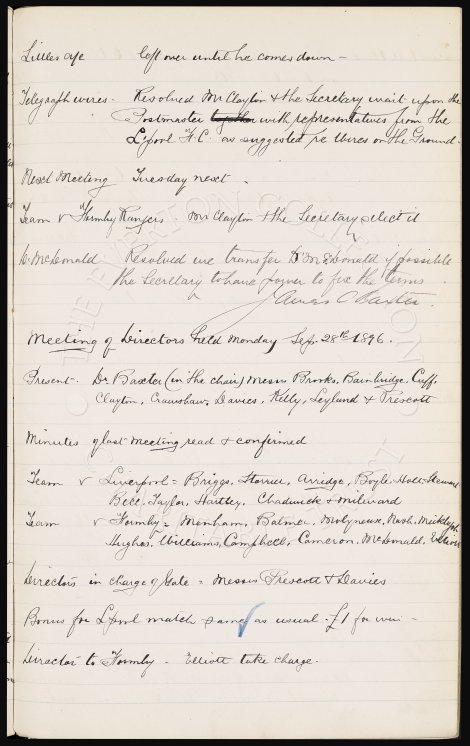 Littles a/c left over until he comes down -
Telegraph wires - Resolved Mr Clayton & the Secretary wait upon the
Postmaster together with representatives from the
L'pool F.C. as suggested re Wires on the Ground.
Next Meeting Tuesday next -
Team v Formby Rangers Mr Clayton & the Secretary select it
D. McDonald Resolved we transfer D. McDonald if possible
the Secretary to have power to fix the terms
James C Baxter.
Meeting of Directors held Monday Sep. 28th 1896.
Present - Dr Baxter (in the chair) Messrs Brooks, Bainbridge, Cuff,
Clayton, Crawshaw, Davies, Kelly, Leyland & Prescott
Minutes of last meeting read & confirmed
Team v Liverpool = Briggs, Storrier, Arridge, Boyle, Holt, Stewart
Bell, Taylor, Hartley, Chadwick & Milward
Team v Formby = Menham, Balmer, Molyneux, Nash, Meiklejohn
Hughes, Williams, Campbell, Cameron, McDonald,
Directors in charge of Gate = Messrs Prescott & Davies
Bonus for L'pool match same as usual £1 for win -
Director to Formby - Elliott take charge.